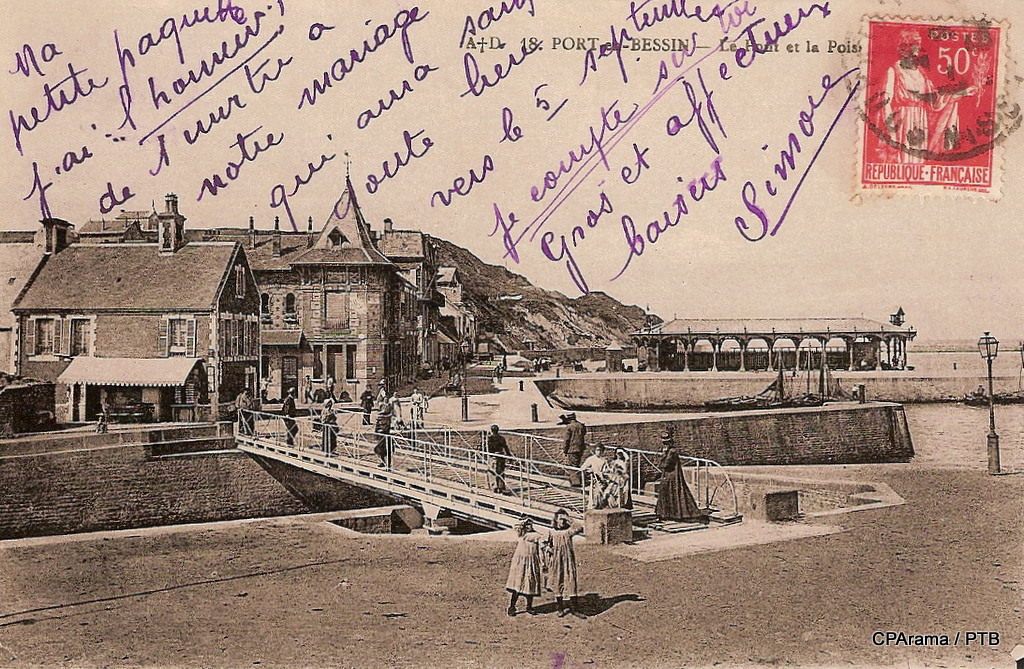 Ma
petite paquette
j'ai l'honneur
de t'inviter a
notre mariage
qui aura sans
doute lieu
vers le 5 septembre
Je compte sur toi
Gros et affectueux
baisers
Simone
A+D. 18. PORT-en-BESSIN — Le Pont et la Pois
POSTES
50c
RÉPUBLIQUE-FRANÇAISE
CPArama / PTB